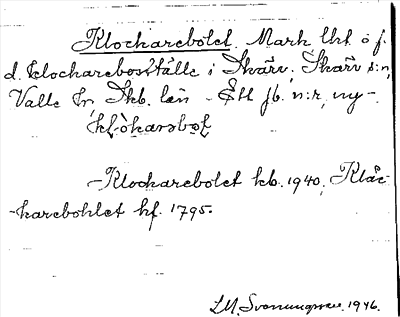 Klockarebolet. Mark lht o f.
d. klockareboställe i Skärv, Skärv s:n,
Valle hd, Skb. län. - Ett jb. n:r, ny-.
- Klockarebolet kb. 1940, Klåc-
karebohlet hf. 1795.
L.M. Svenungsson 1946.